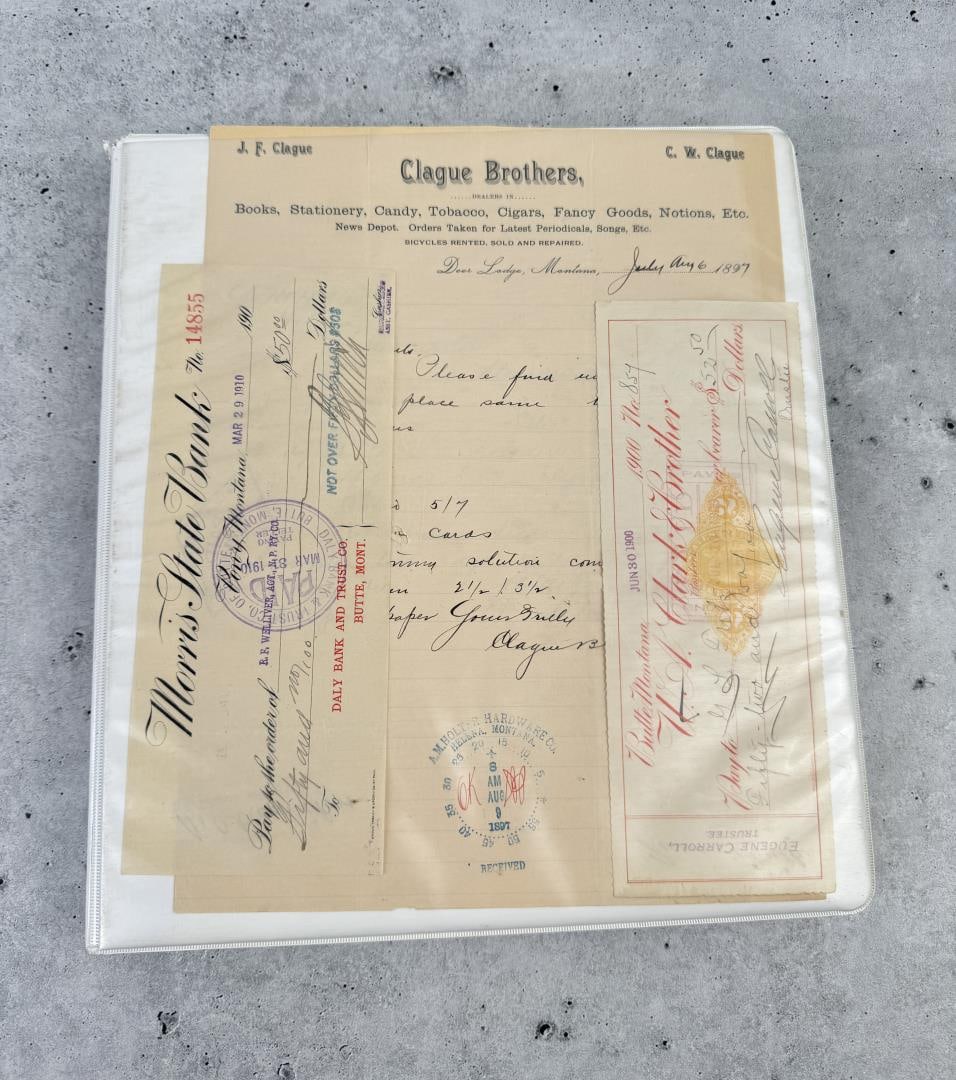 J. F. Clague
C. W. Clague
Clague Brothers,
......DEALERS IN......
Books, Stationery, Candy, Tobacco, Cigars, Fancy Goods, Notions, Etc.
News Depot. Orders Taken for Latest Periodicals, Songs, Etc.
BICYCLES RENTED, SOLD AND REPAIRED.
Deer Lodge, Montana, July Aug 6 1897
Please find
place same
us
5/7
Cards
solution
2 1/2 / 3 1/2.
paper Yours Truly
Clague B
A.M. HOLTER HARDWARE CO.
HELENA, MONTANA.
8
AM
AUG
9
1897
OK
RECEIVED
Morris State Bank No. 14855
Pony Montana, MAR 29 1910 190
Pay to the order of B. F. WELLIVER, AGT., N. P. RY. CO. $50.00
Fifty and no/100 Dollars
NOT OVER FIFTY DOLLARS $50$
To DALY BANK AND TRUST CO.
BUTTE, MONT.
ASST. CASHIER.
PAID
MAR 31 1910
Butte Montana, JUN 30 1900 1900 No. 857
W. A. Clark & Brother
Pay to or bearer $52.50
Fifty-two and 50/100 Dollars
Eugene Carroll
Trustee
EUGENE CARROLL,
TRUSTEE.